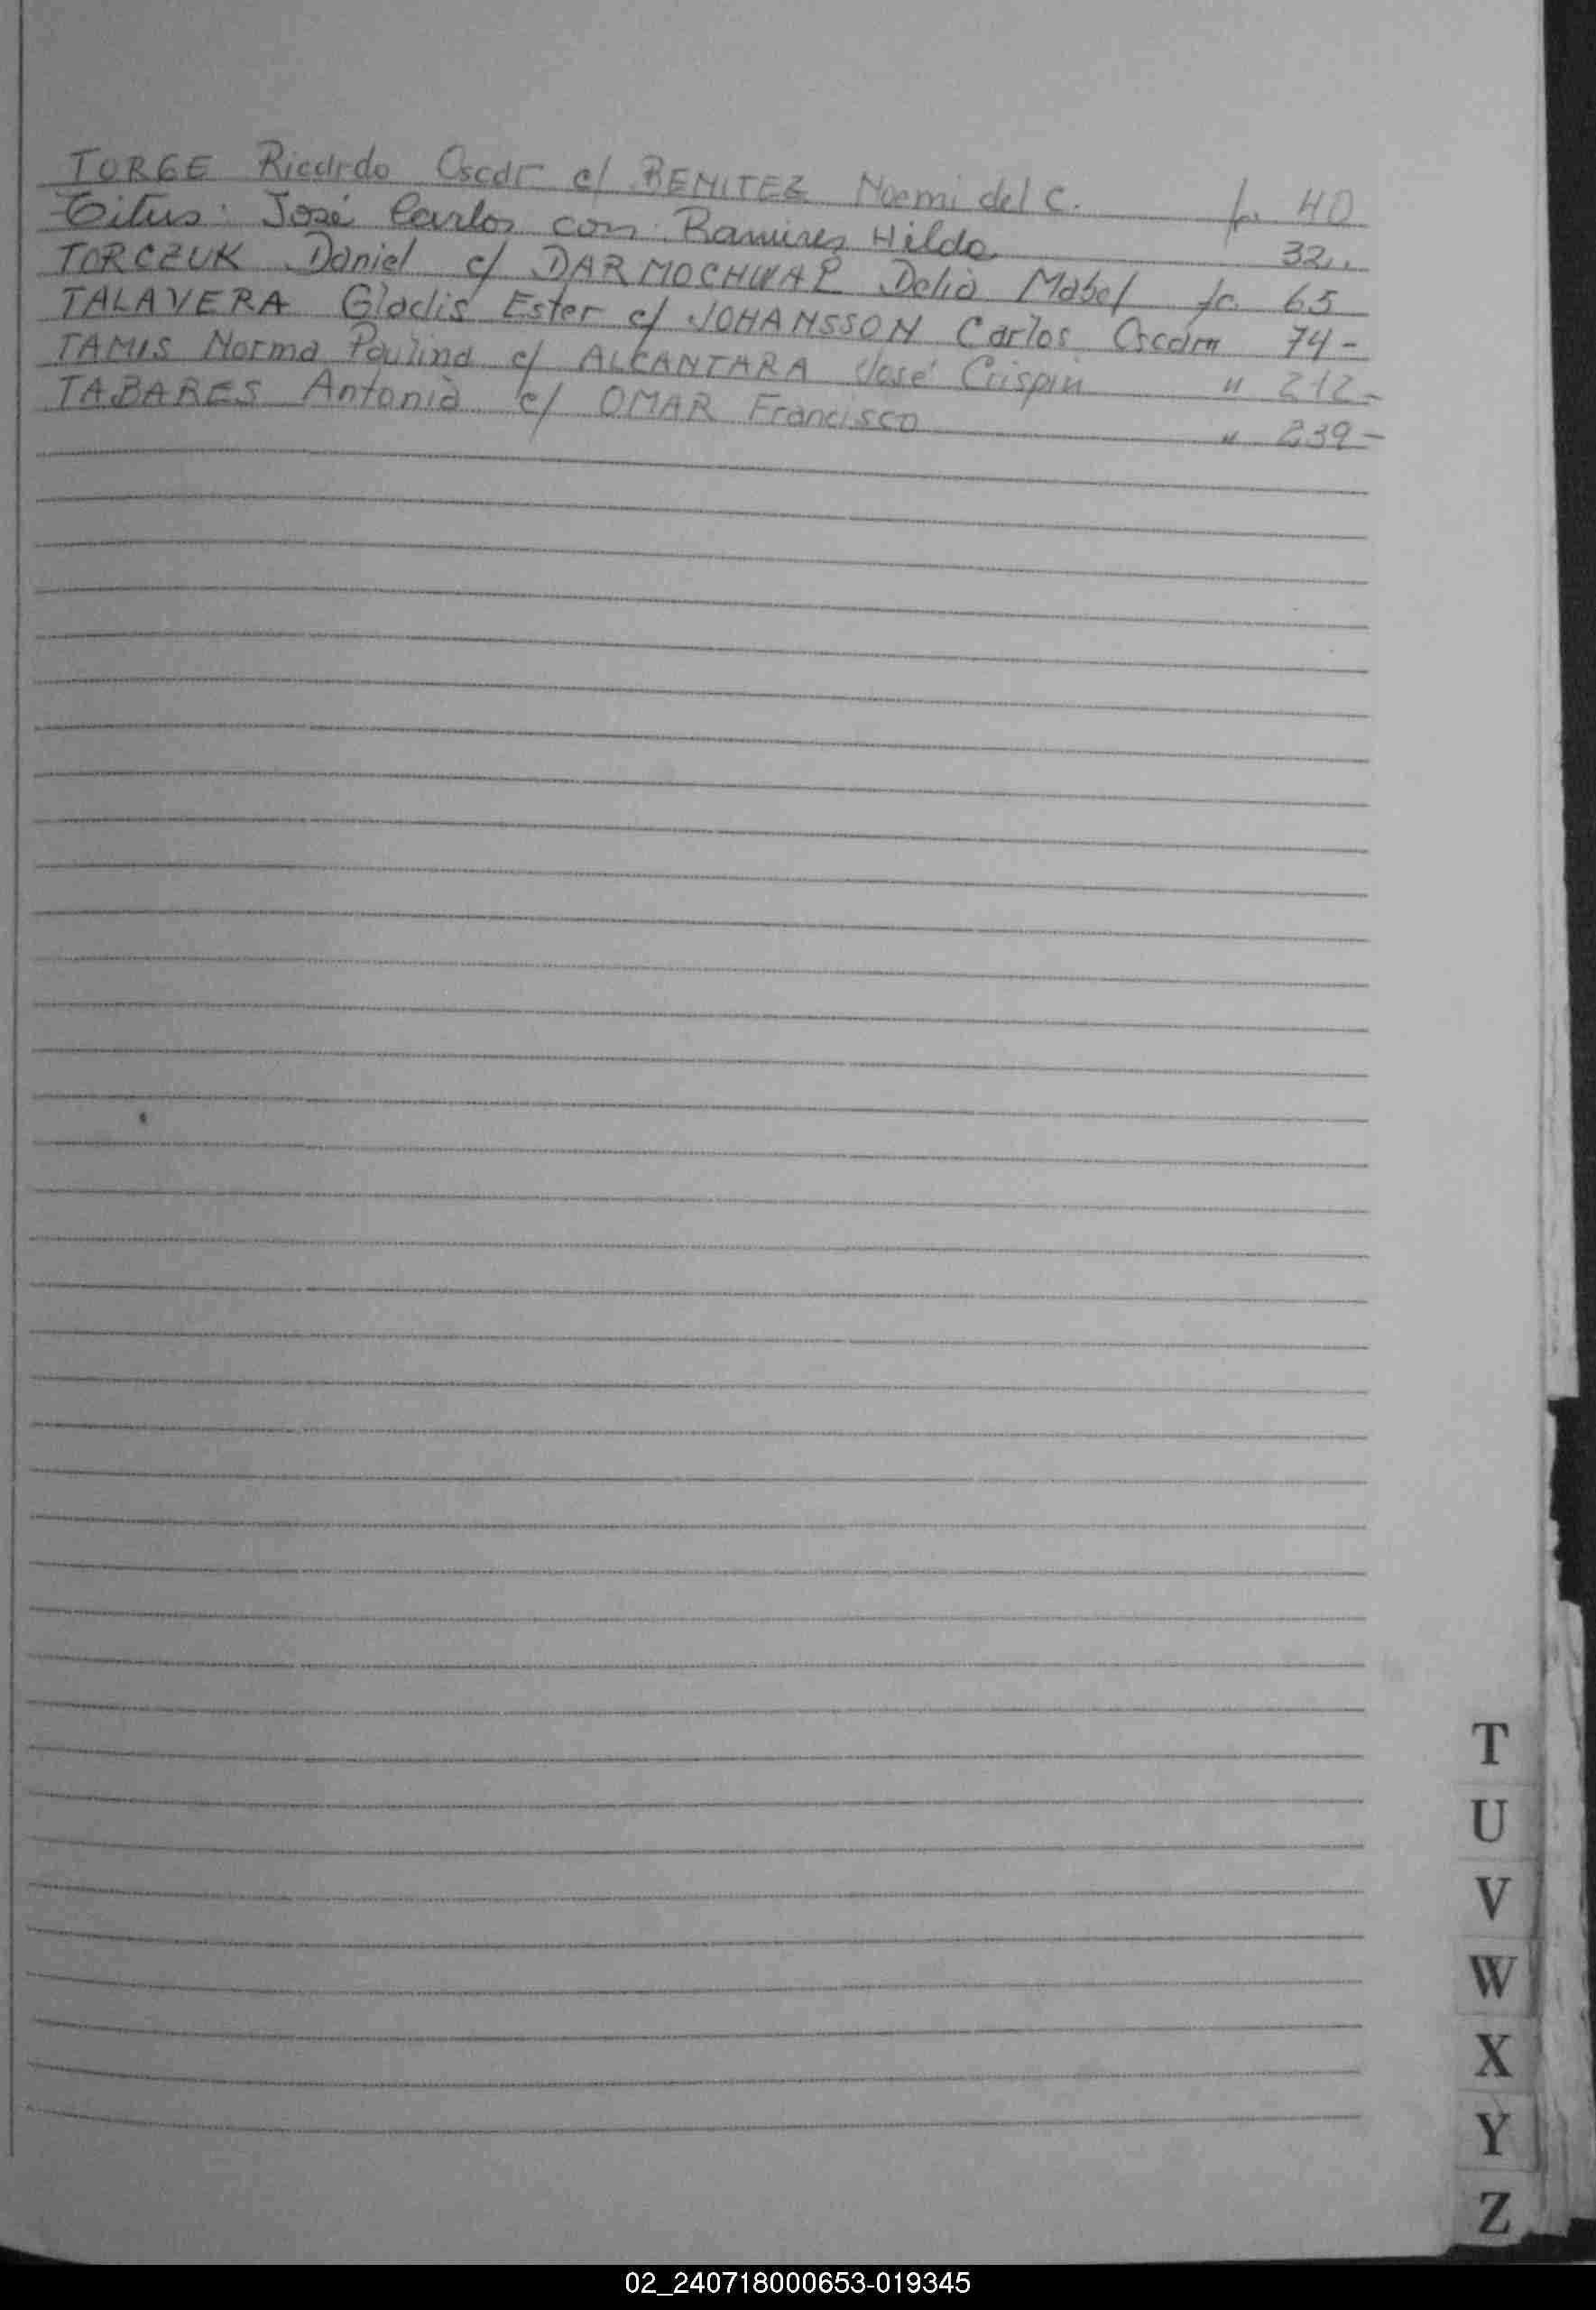 TORGE Ricardo Oscar c/ BENITEZ Noemi del C. fo. 40
Titus: José Carlos con Ramires Hilda 32,,
TORCZUK Daniel c/ DARMOCHWAL Delia Mabel fo. 65
TALAVERA Gladis Ester c/ JOHANSSON Carlos Oscar " 74-
TAMIS Norma Paulina c/ ALCANTARA José Crispin " 212-
TABARES Antonia c/ OMAR Francisco " 239-
T
U
V
W
X
Y
Z
02_240718000653-019345